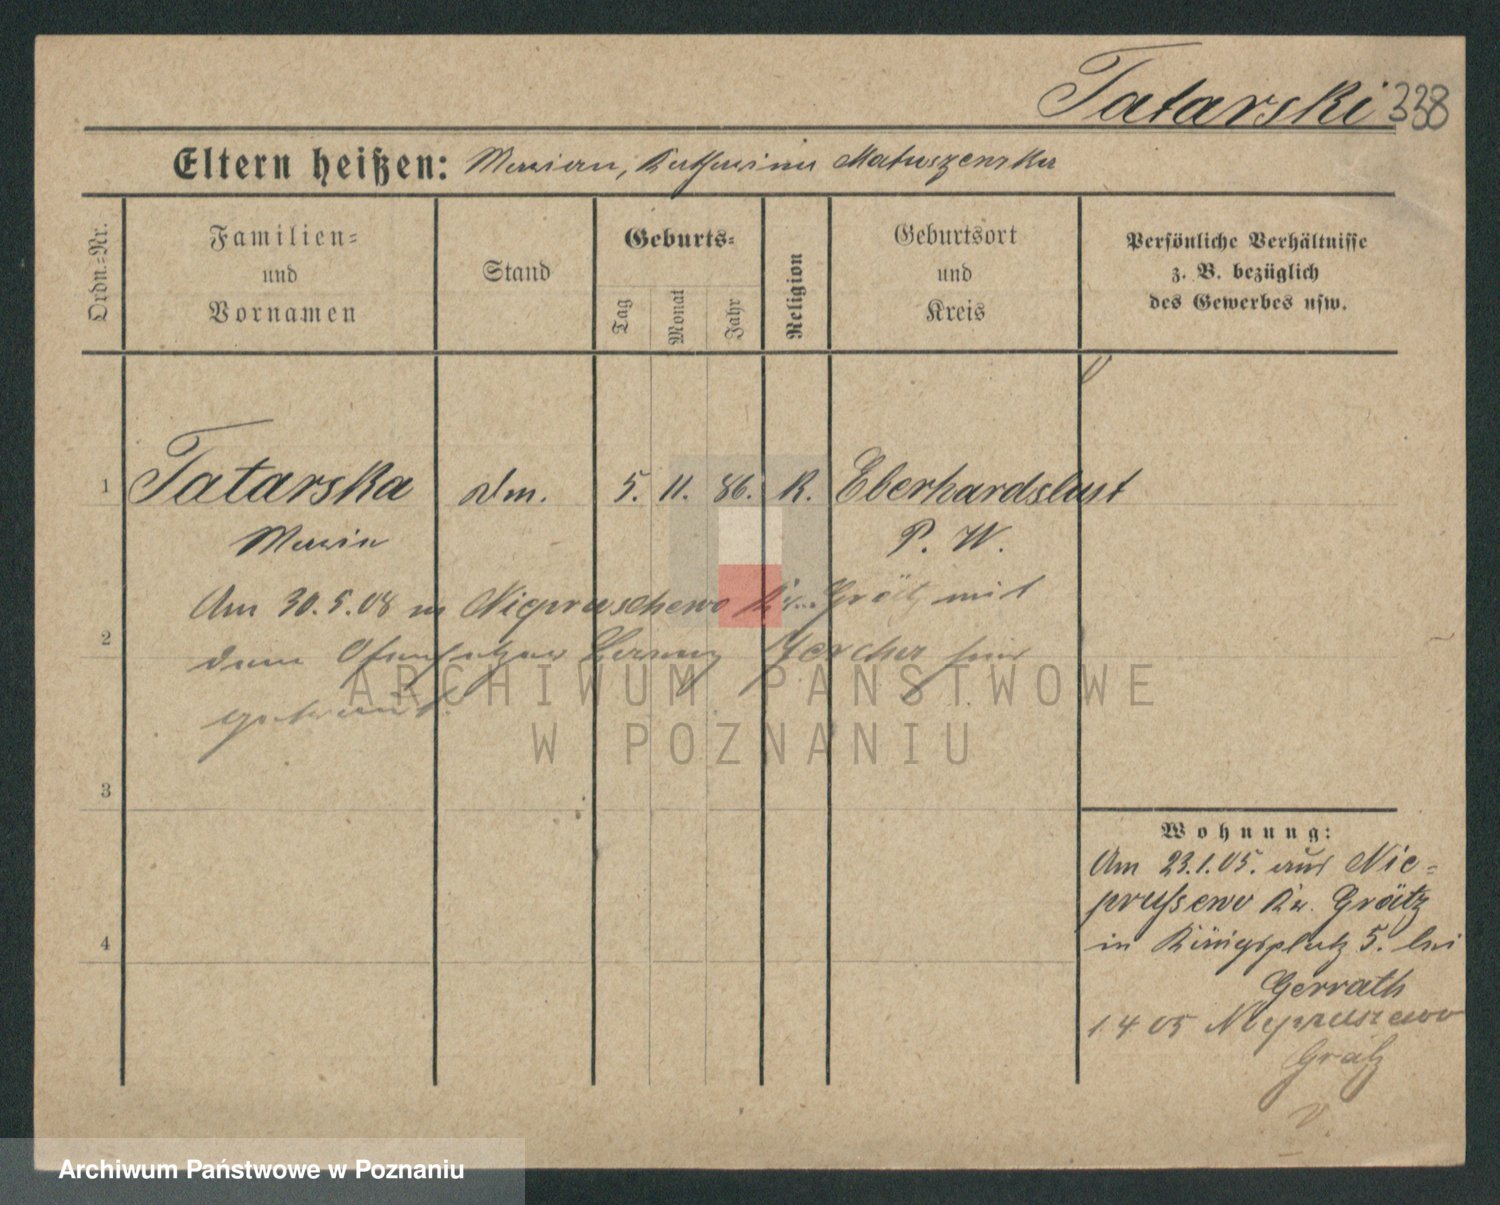 Tatarski 338
Eltern heißen: Marian, Katharina Matuszewska
Ordn.-Nr.
Familien-
und
Vornamen
Stand
Geburts-
Tag
Monat
Jahr
Religion
Geburtsort
und
Kreis
Persönliche Verhältnisse
z. B. bezüglich
des Gewerbes usw.
1 Tatarska dm. 5. 11. 86. K. Eberhardslust
Maria P. W.
Am 30.5.08 in Niepruschewo Kr. Grätz mit
2
dem Ofensetzer Lorenz hier
getraut.
3
Wohnung:
Am 23.1.05. aus Nie-
prussewo Kr. Grätz
in Königsplatz 5. bei
4
Gerrath
1 4 05 Niepruszewo
Grätz
ARCHIWUM PAŃSTWOWE
W POZNANIU
Archiwum Państwowe w Poznaniu